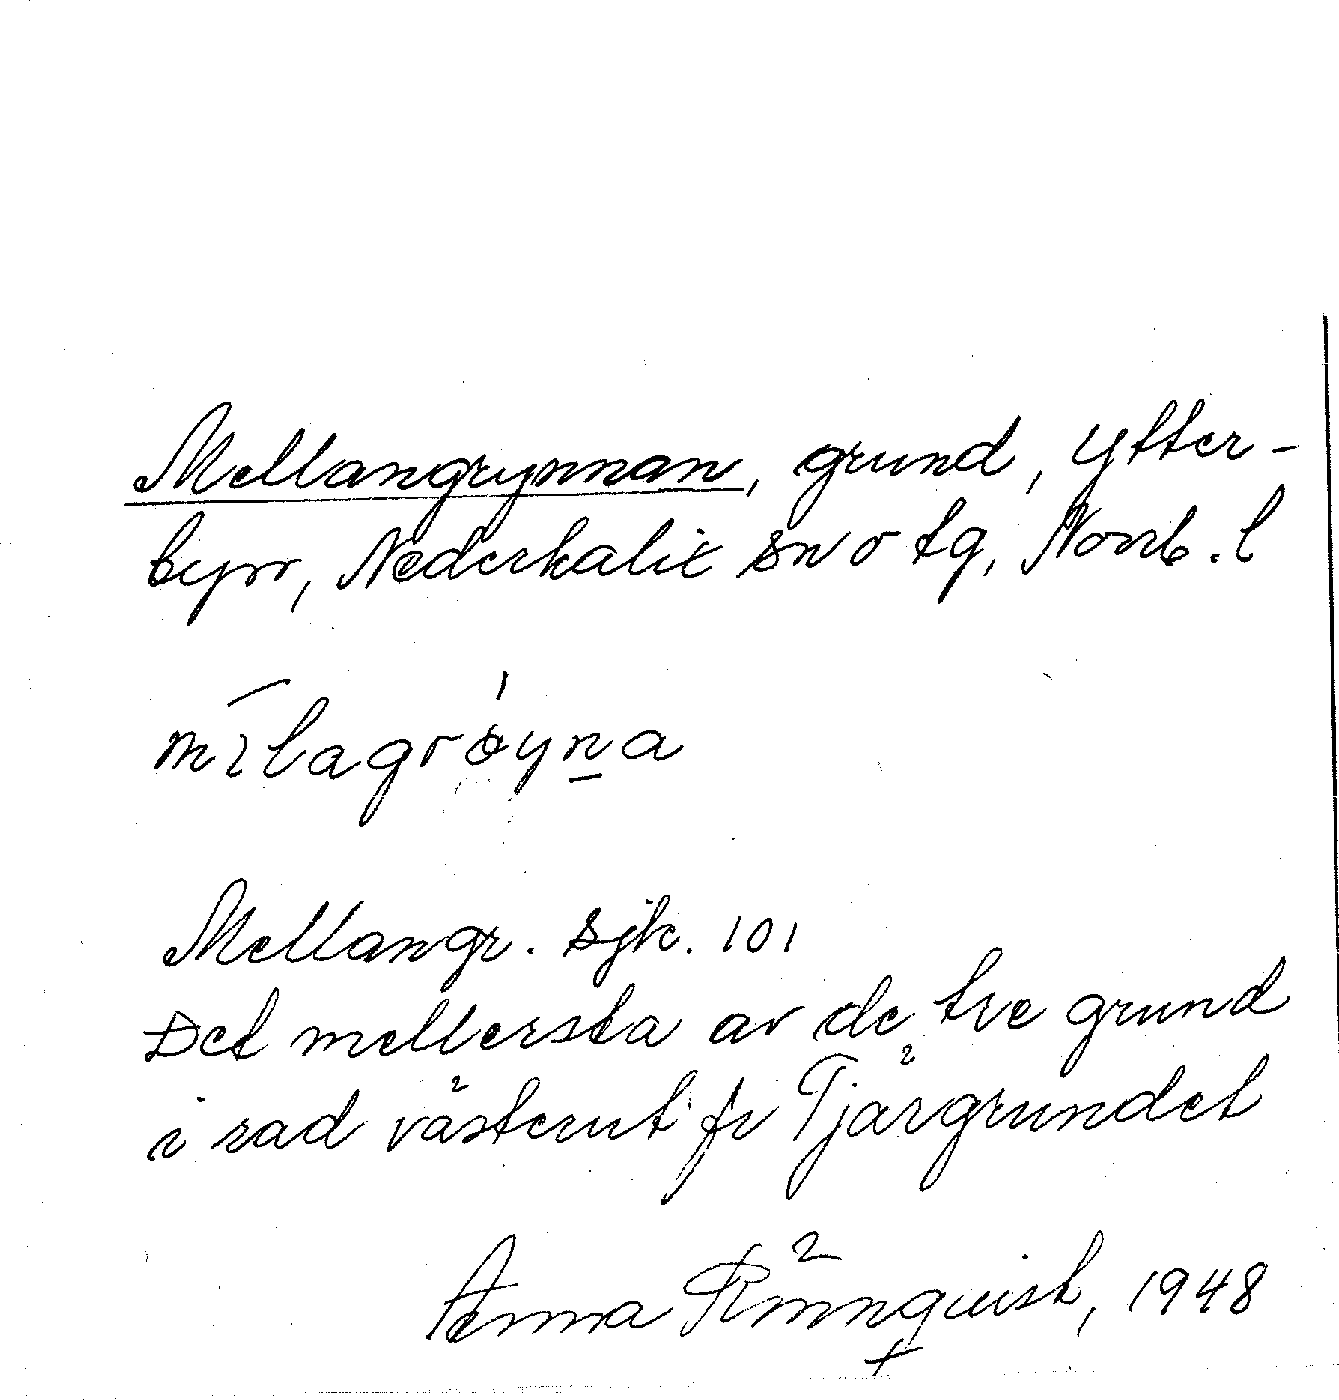 Mellangrynnan, grund, Ytter-
byn, Nederkalix sn o tg, Norrb. l
Mellangr. sjk. 101
Det mellersta av de tre grund
i rad västerut fr Tjärgrundet
Anna Rönnqvist, 1948